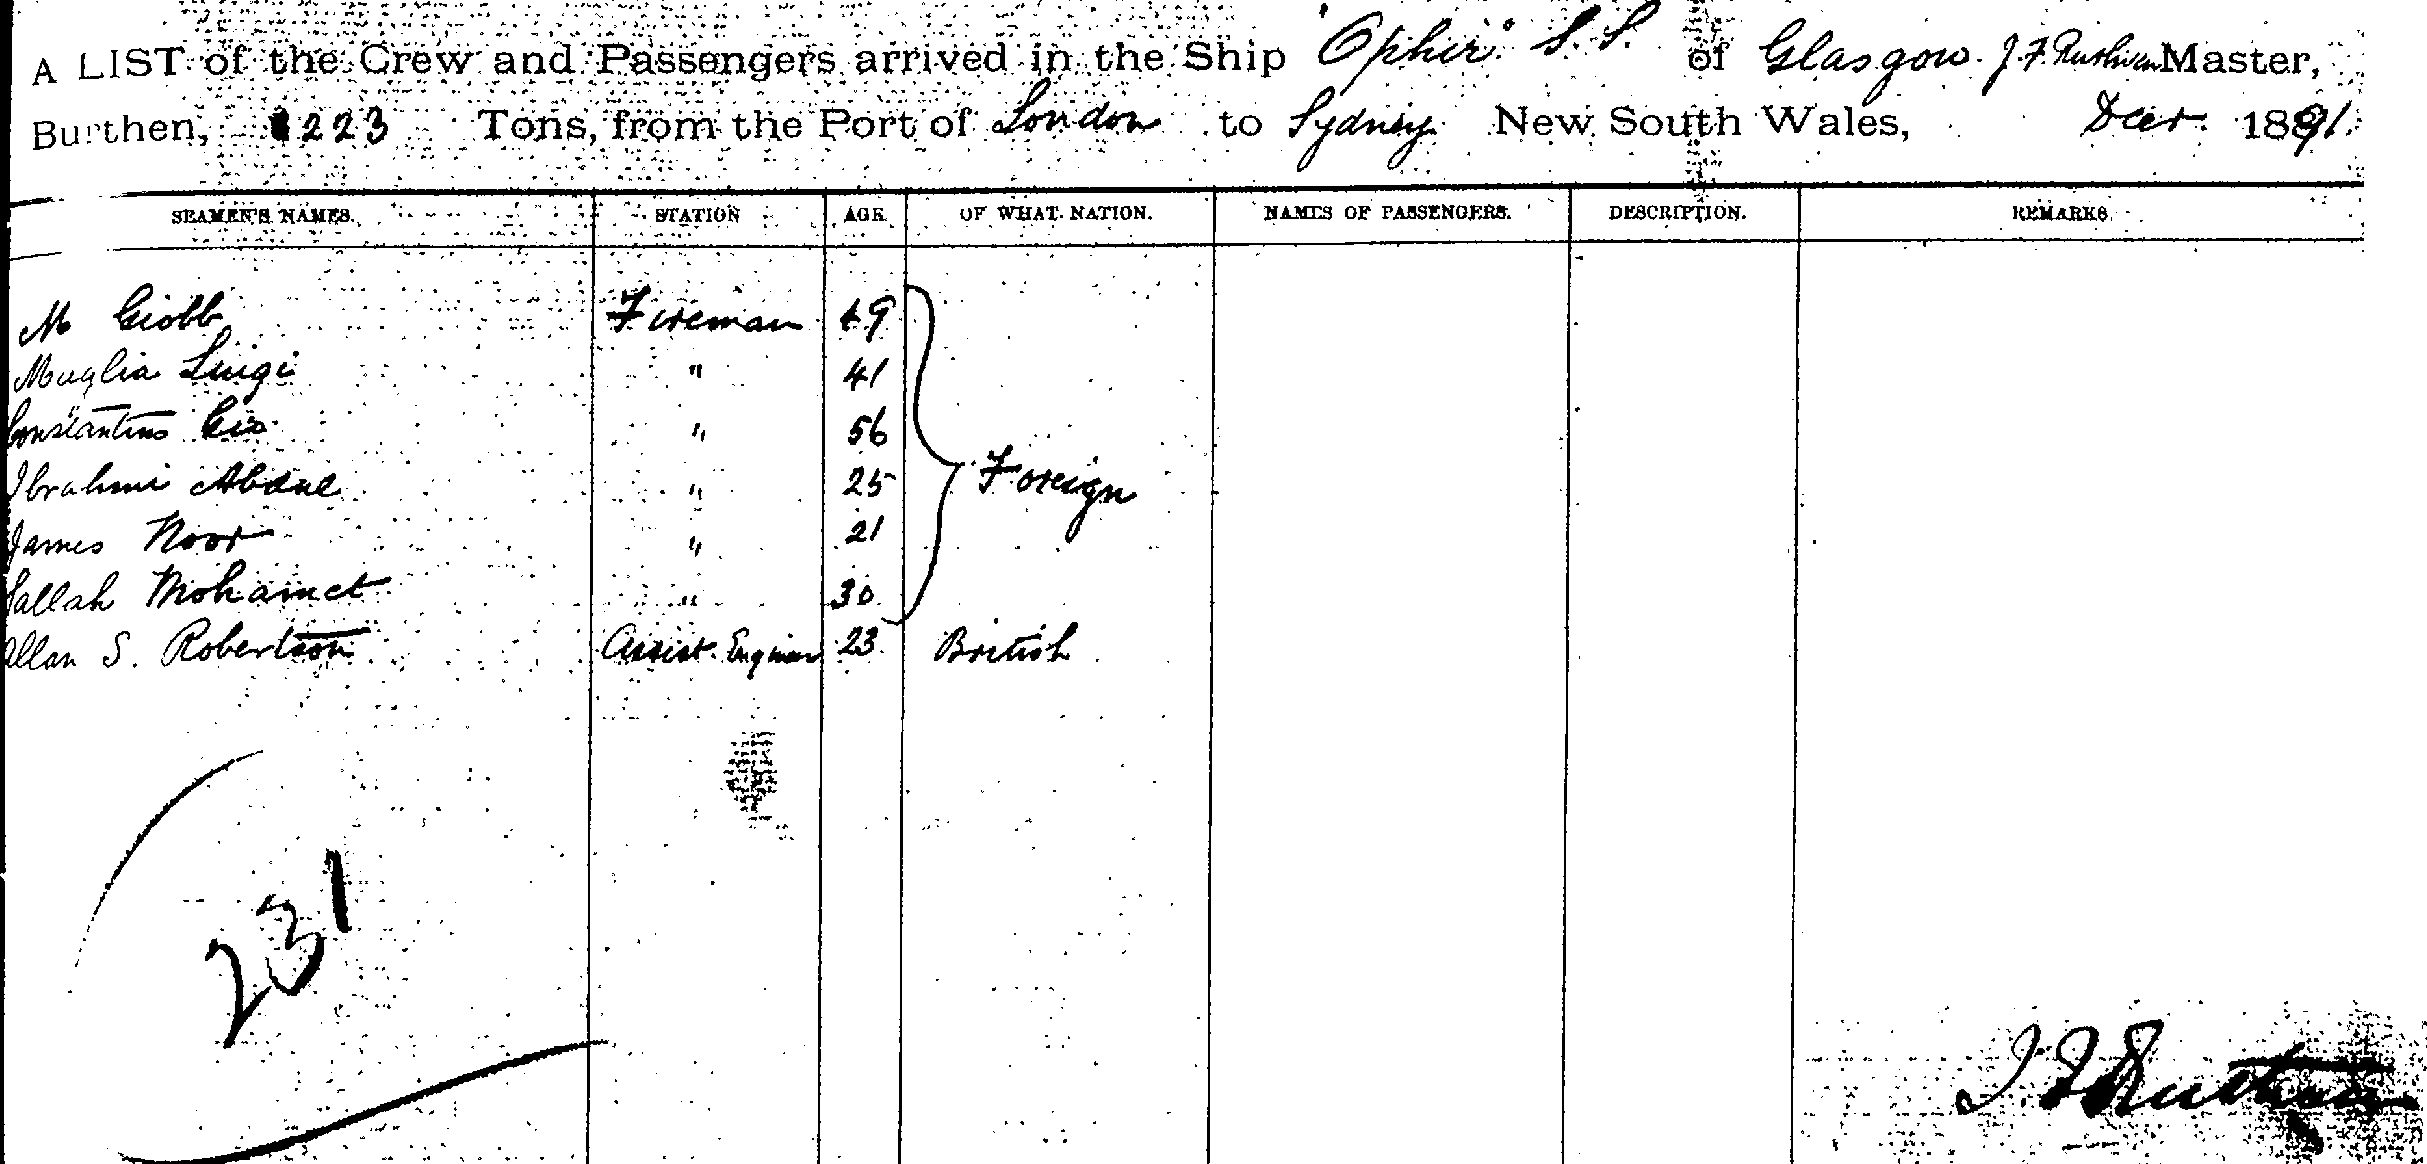 A LIST of the Crew and Passengers arrived in the Ship "Ophir" S.S. of Glasgow. J. F. Ruthven Master,
Burthen, 223 Tons, from the Port of London to Sydney New South Wales, Decr 1891.
SEAMEN'S NAMES. STATION AGE. OF WHAT NATION. NAMES OF PASSENGERS. DESCRIPTION. REMARKS
M Giobb Fireman 49
Muglia Luigi " 41
Constantino Gio " 56
Ibrahmi Abdul " 25
Foreign
James Noor " 21
Sallah Mohamet " 30
Allan S. Robertson Assist. Engineer 23 British
231
J F Ruthven